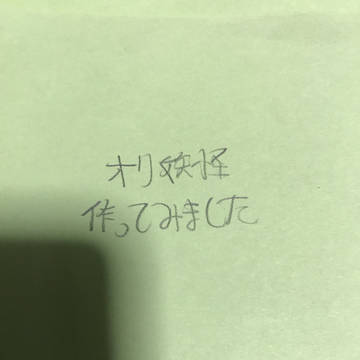 オリ妖怪
作ってみました